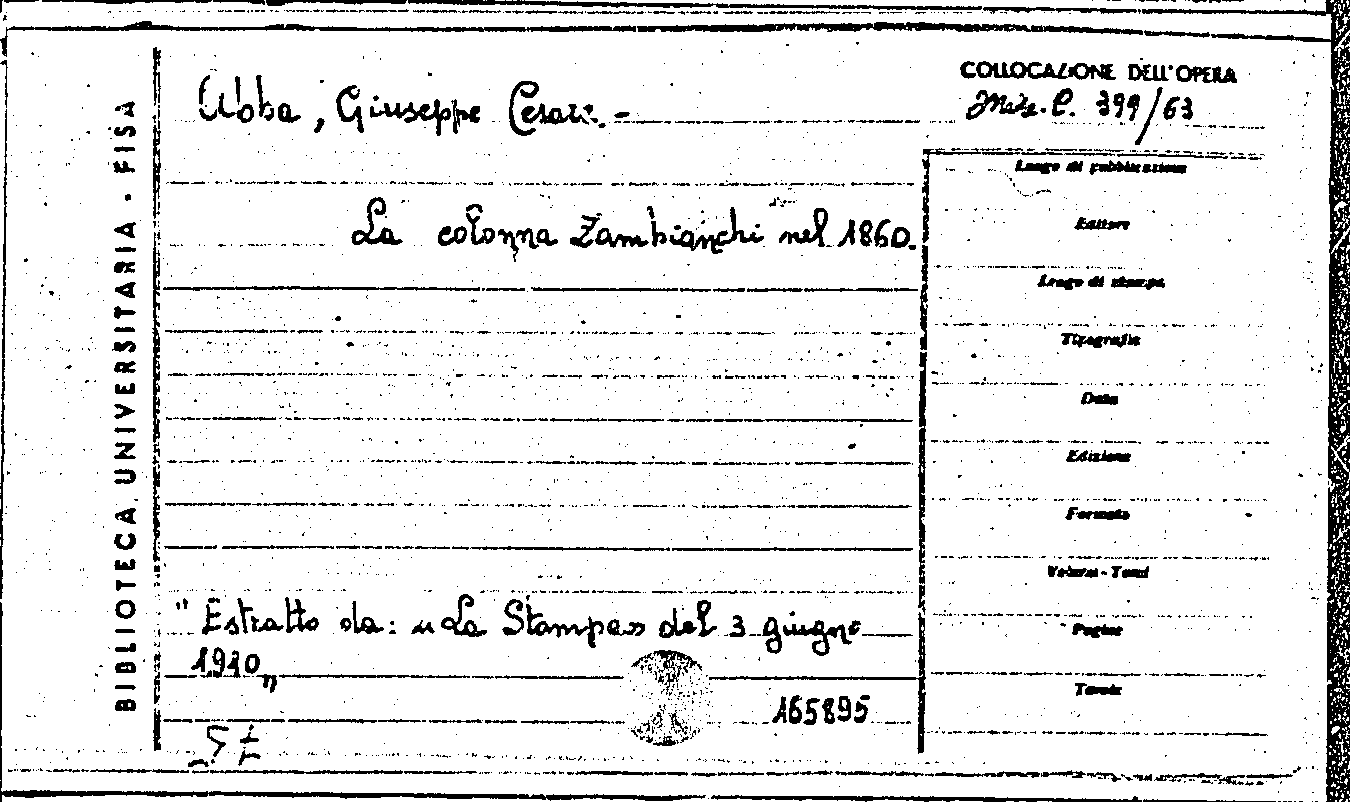 COLLOCAZIONE DELL'OPERA
Abba, Giuseppe Cesare.-
Misc. C. 399/63
La colonna Zambianchi nel 1860.
" Estratto da: «La Stampa» del 3 giugno
1910 "
165895
BIBLIOTECA UNIVERSITARIA - PISA
Luogo di pubblicazione
Editore
Luogo di stampa
Tipografia
Data
Edizione
Formato
Volumi - Tomi
Pagine
Tavole